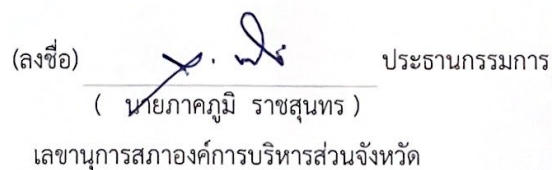 (ลงชื่อ) ประธานกรรมการ
( นายภาคภูมิ ราชสุนทร )
เลขานุการสภาองค์การบริหารส่วนจังหวัด